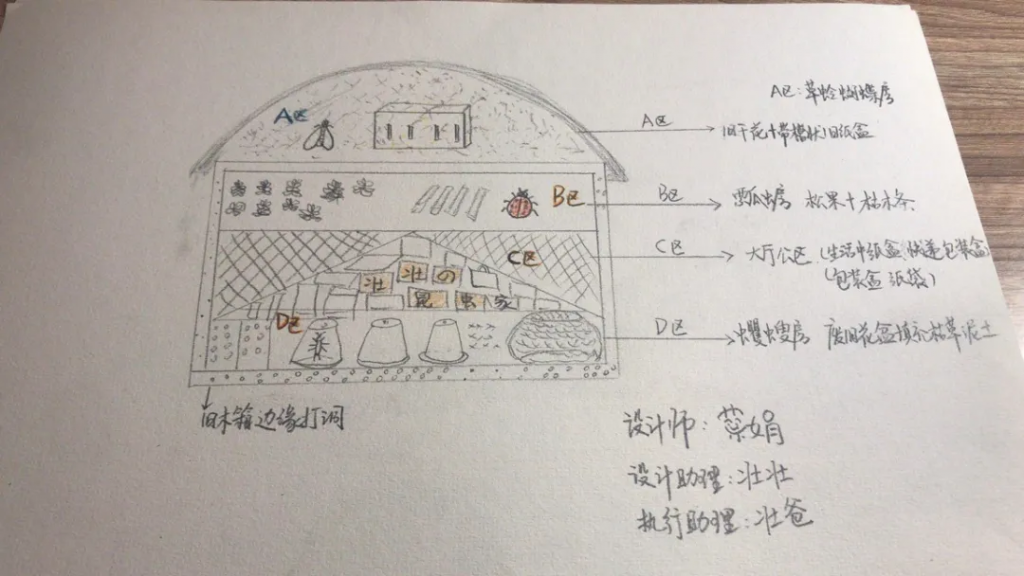 A区
A区:草蛉蝴蝶房
A区
旧干花+带槽状旧纸盒
B区
B区
瓢虫房 松果+枯木条
C区
C区
大厅公区(生活中纸盒、快递包装盒)
(包装盒 纸袋)
壮 壮 の
昆 虫 家
D区
D区
蠼螋房 废旧花盒填充枯草泥土
旧木箱边缘打洞
设计师:蔡娟
设计助理:壮壮
执行助理:壮爸